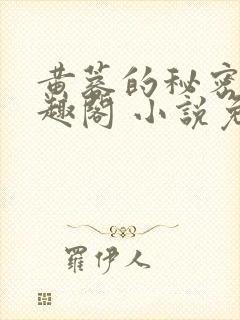 黄蓉的秘密
趣阁 小說免
羅伊人